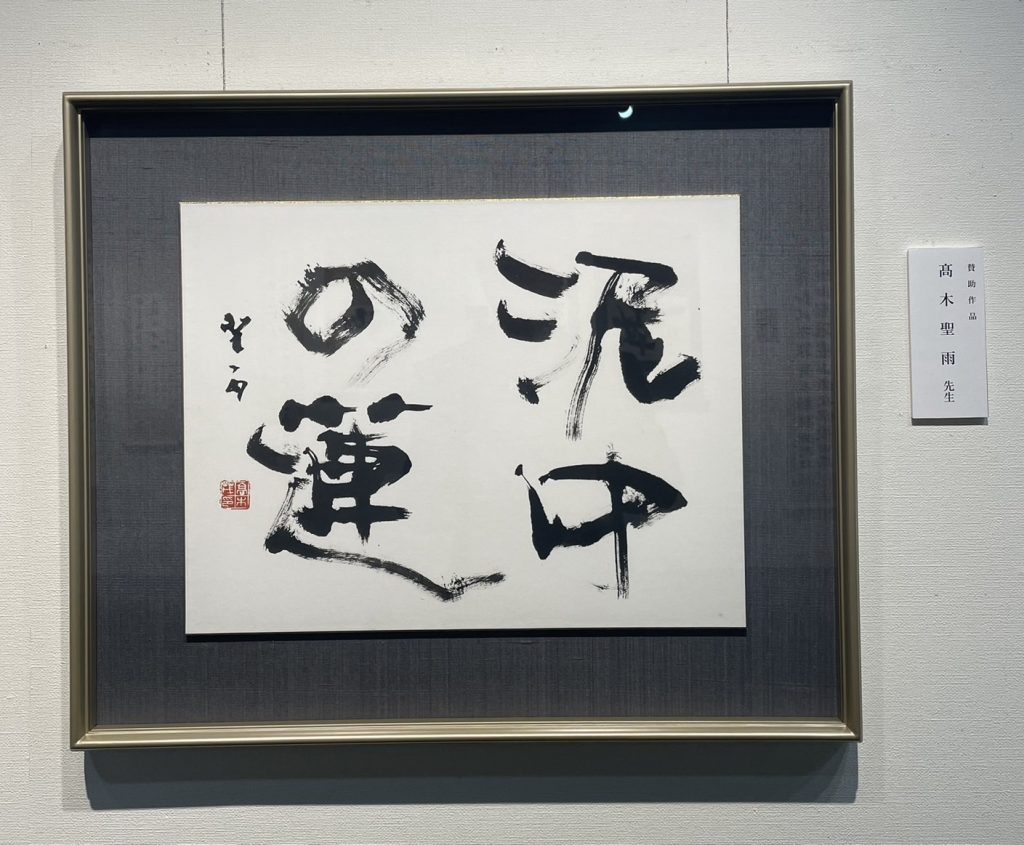 泥中
の蓮
聖雨
賛助作品
髙木聖雨 先生